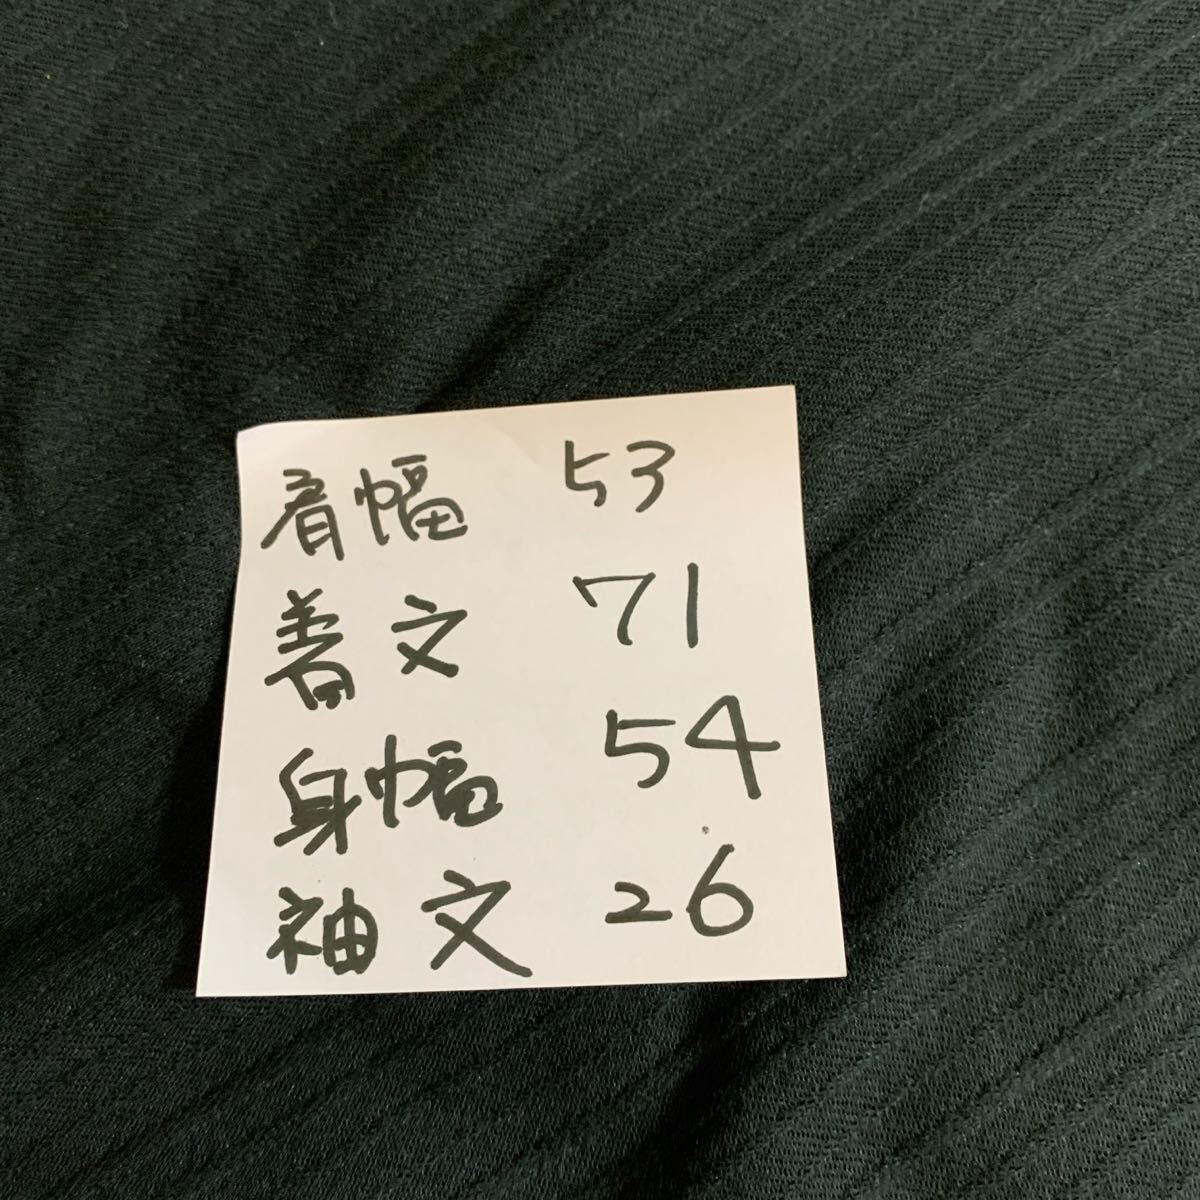 肩幅 53
着丈 71
身幅 54
袖丈 26